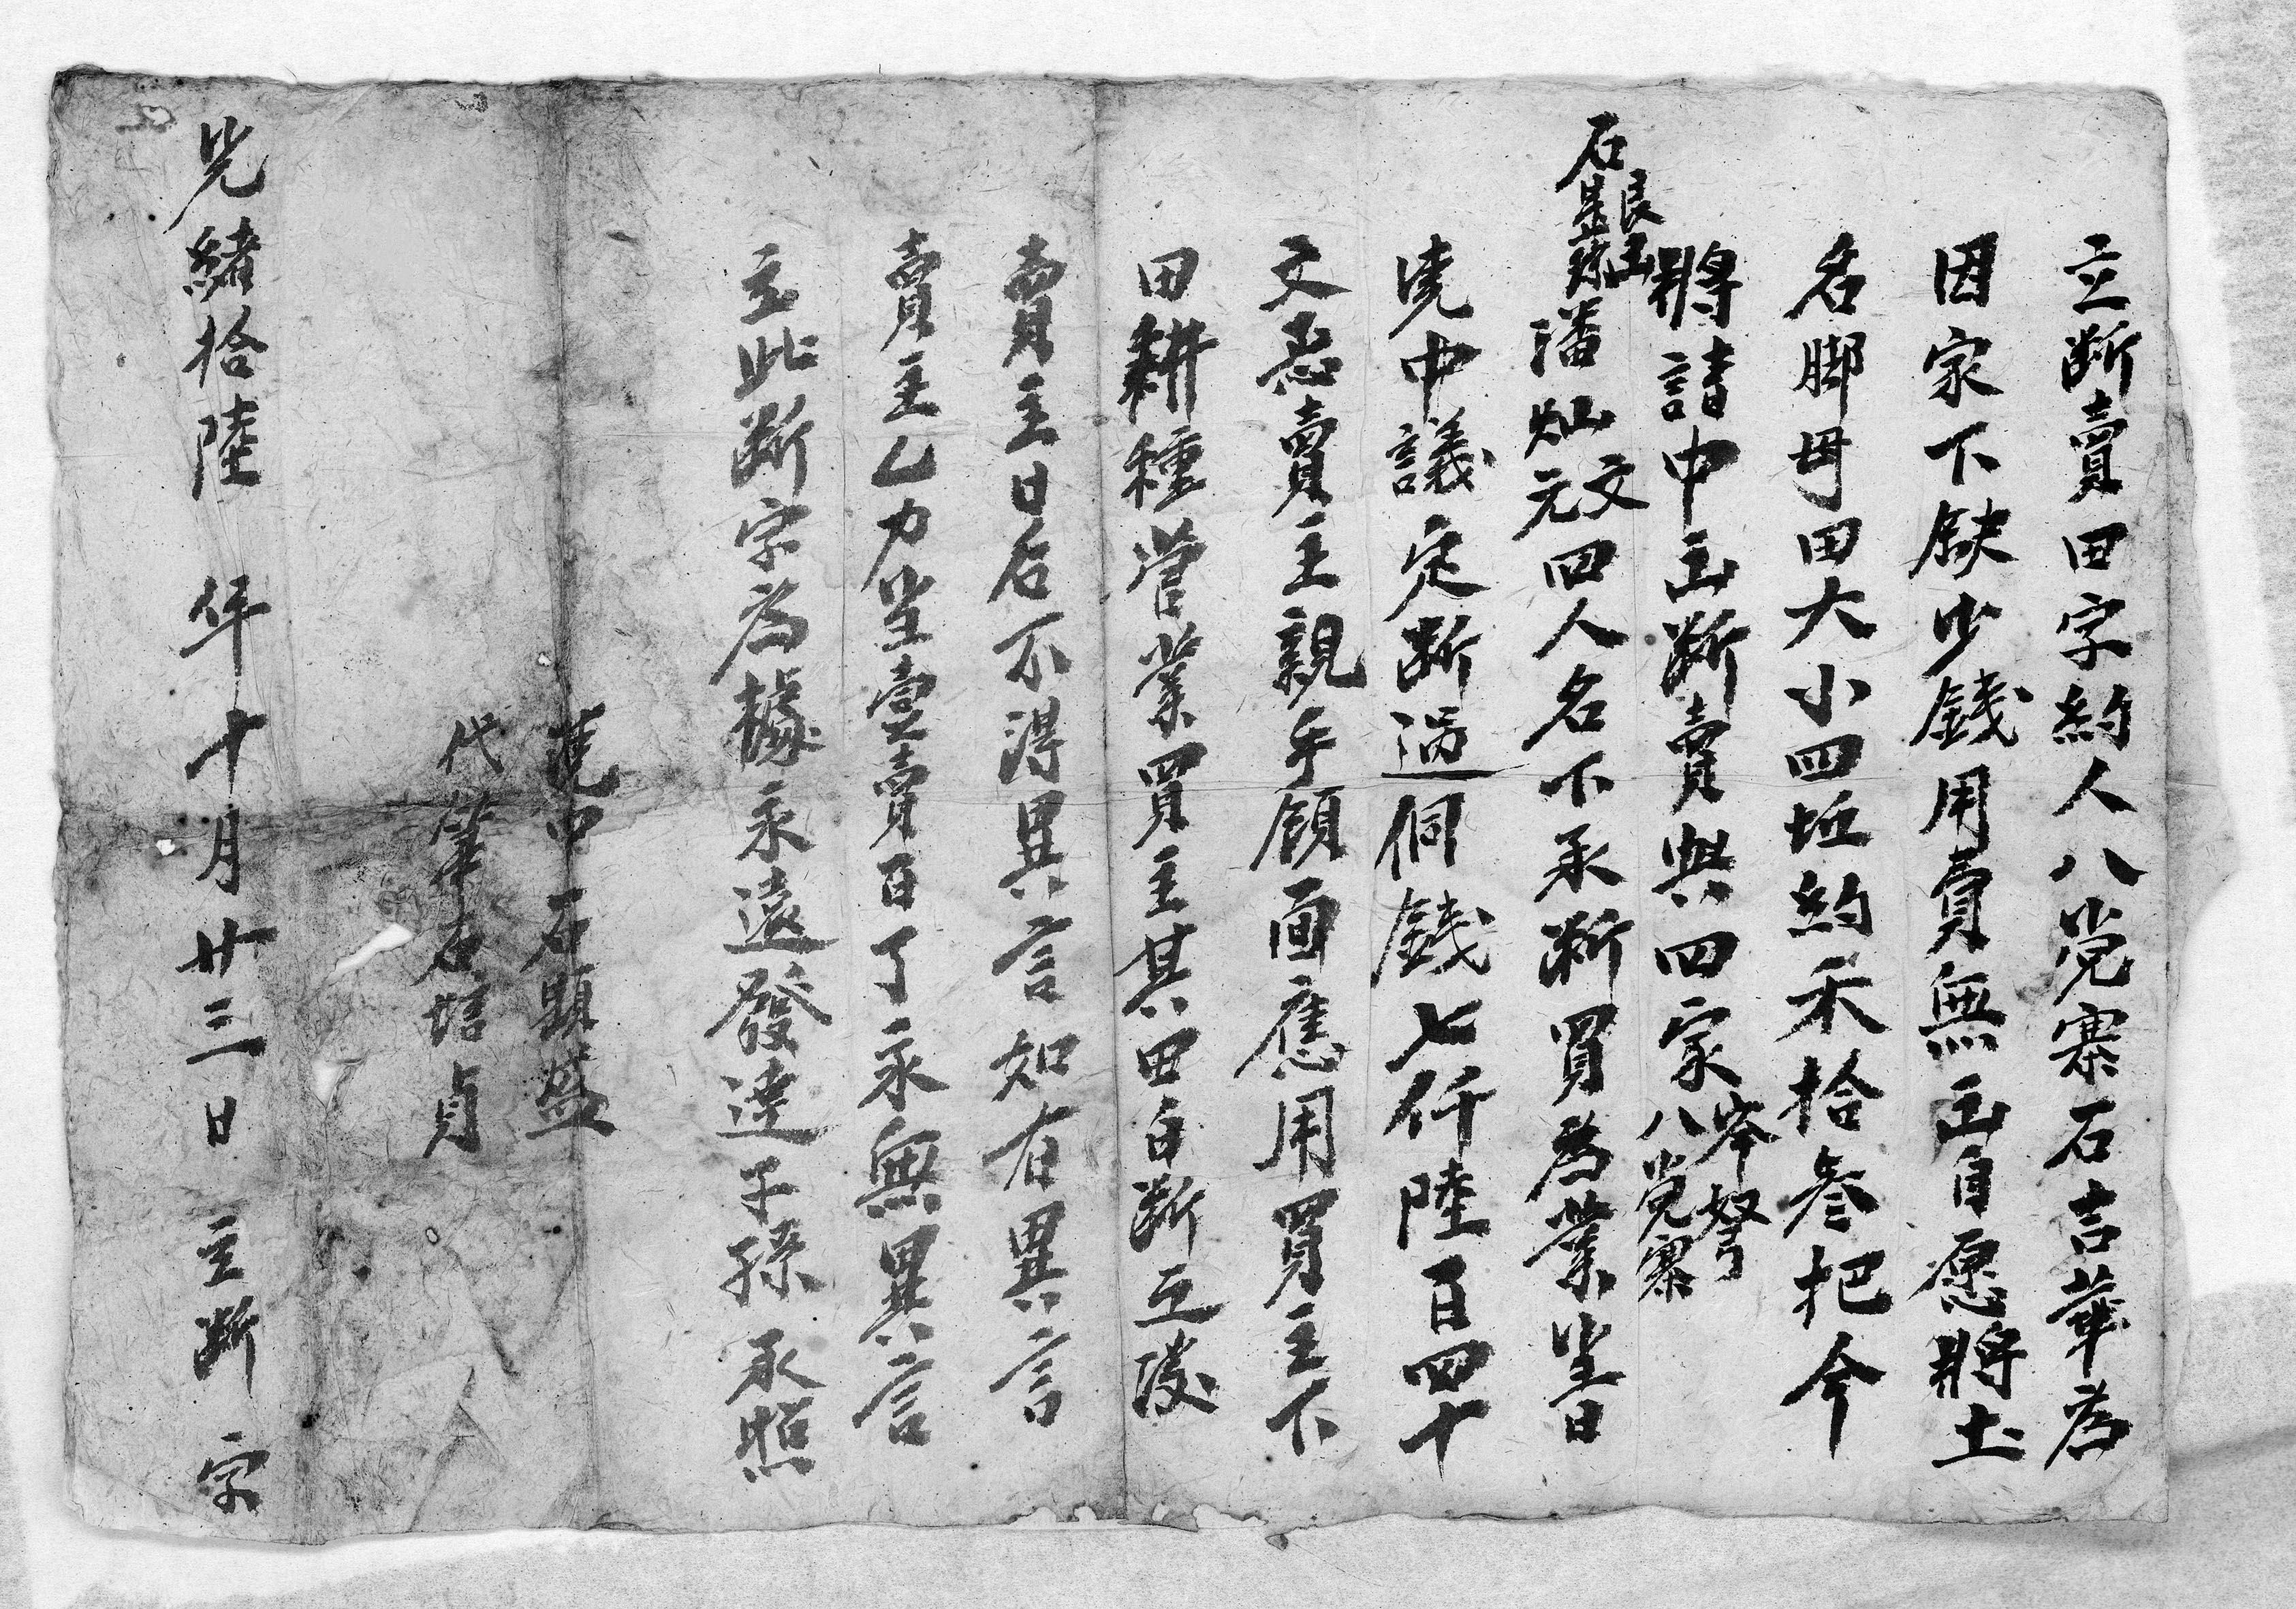 立断賣田字約人八党寨石言華為
因家下缺少錢用賣無出自愿將土
名脚母田大小四坵約禾拾叁把今
將請中出断賣與四家岑努八党寨
石良山潘灿文元四人名下承断買為業當日
凴中議定断過銅錢七仟陸百四十
文悉賣主親手領面應用買主下
田耕種營業買主其田自断立後
賣主日后不得異言如有異言
賣主乙力當壹賣百了永無異言
立此断字為據永遠發達子孫承照
凴中 石顕盛
代筆石培貞
光緒拾陸 年十月廿三日 立断 字